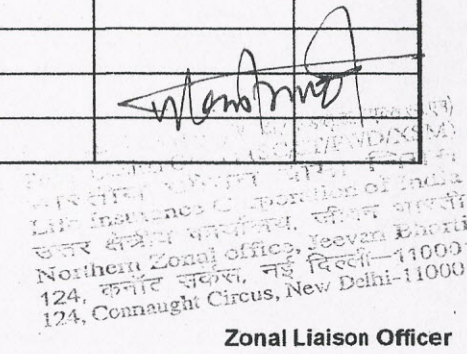 (SC/ST/PWD/XSM)
भारतीय जीवन बीमा निगम
Life Insurance Corporation of India
उत्तर क्षेत्रीय कार्यालय, जीवन भारती
Northern Zonal office, Jeevan Bharti
124, कनॉट सर्कस, नई दिल्ली-11000
124, Connaught Circus, New Delhi-11000
Zonal Liaison Officer